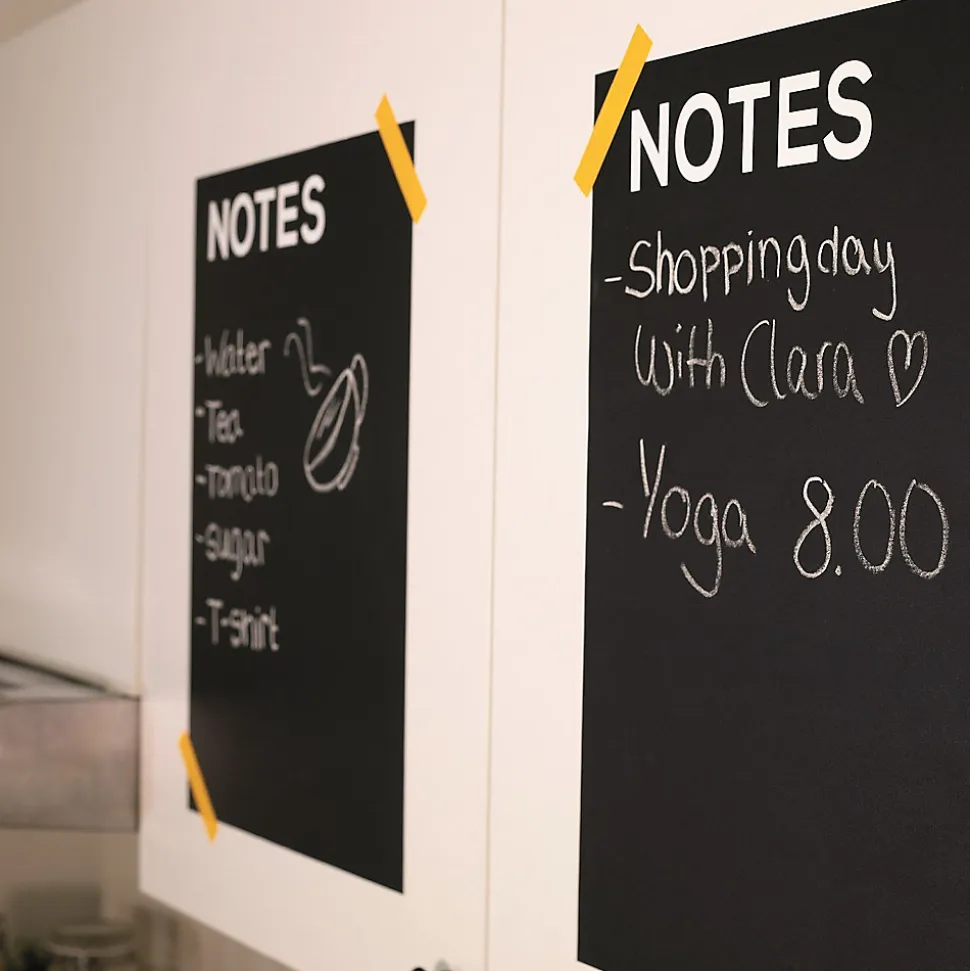 NOTES
-Water
-Tea
-Tomato
-sugar
-T-shirt
NOTES
-Shoppingday
With Clara ♡
-Yoga 8.00